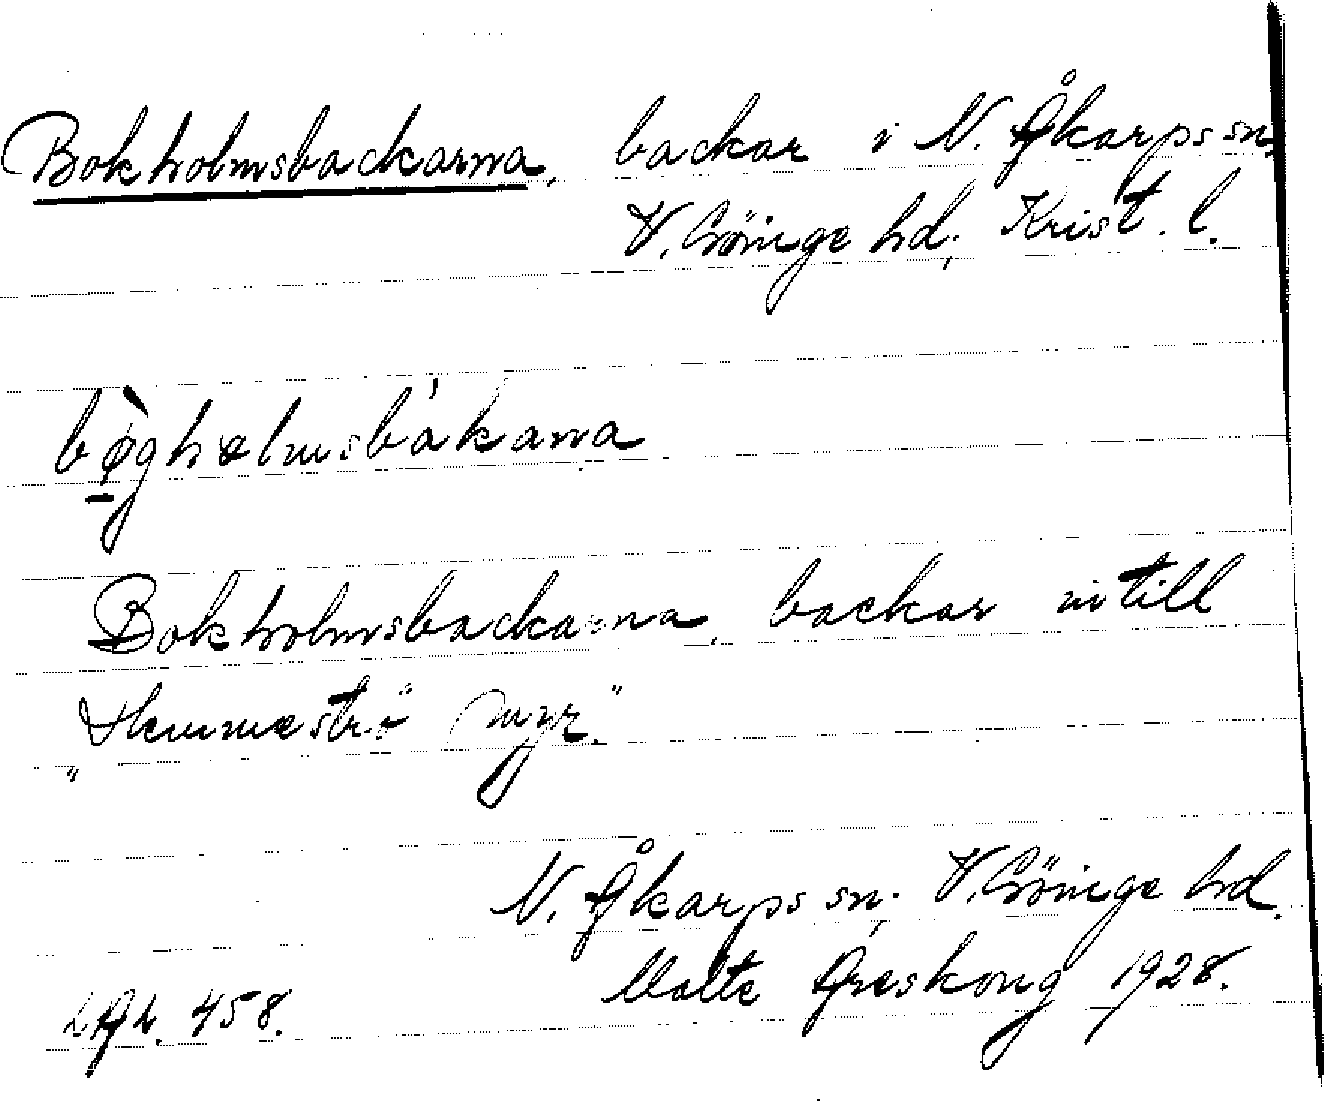 Bokholmsbackarna, backar i N. Åkarps sn,
V. Göinge hd; Krist. l.
bøghelmsbákana
Bokholmsbackarna, backar intill
"Hemmeströ" myr."
N. Åkarps sn. V. Göinge hd.
Malte Areskoug 1928.
LAL. 458.